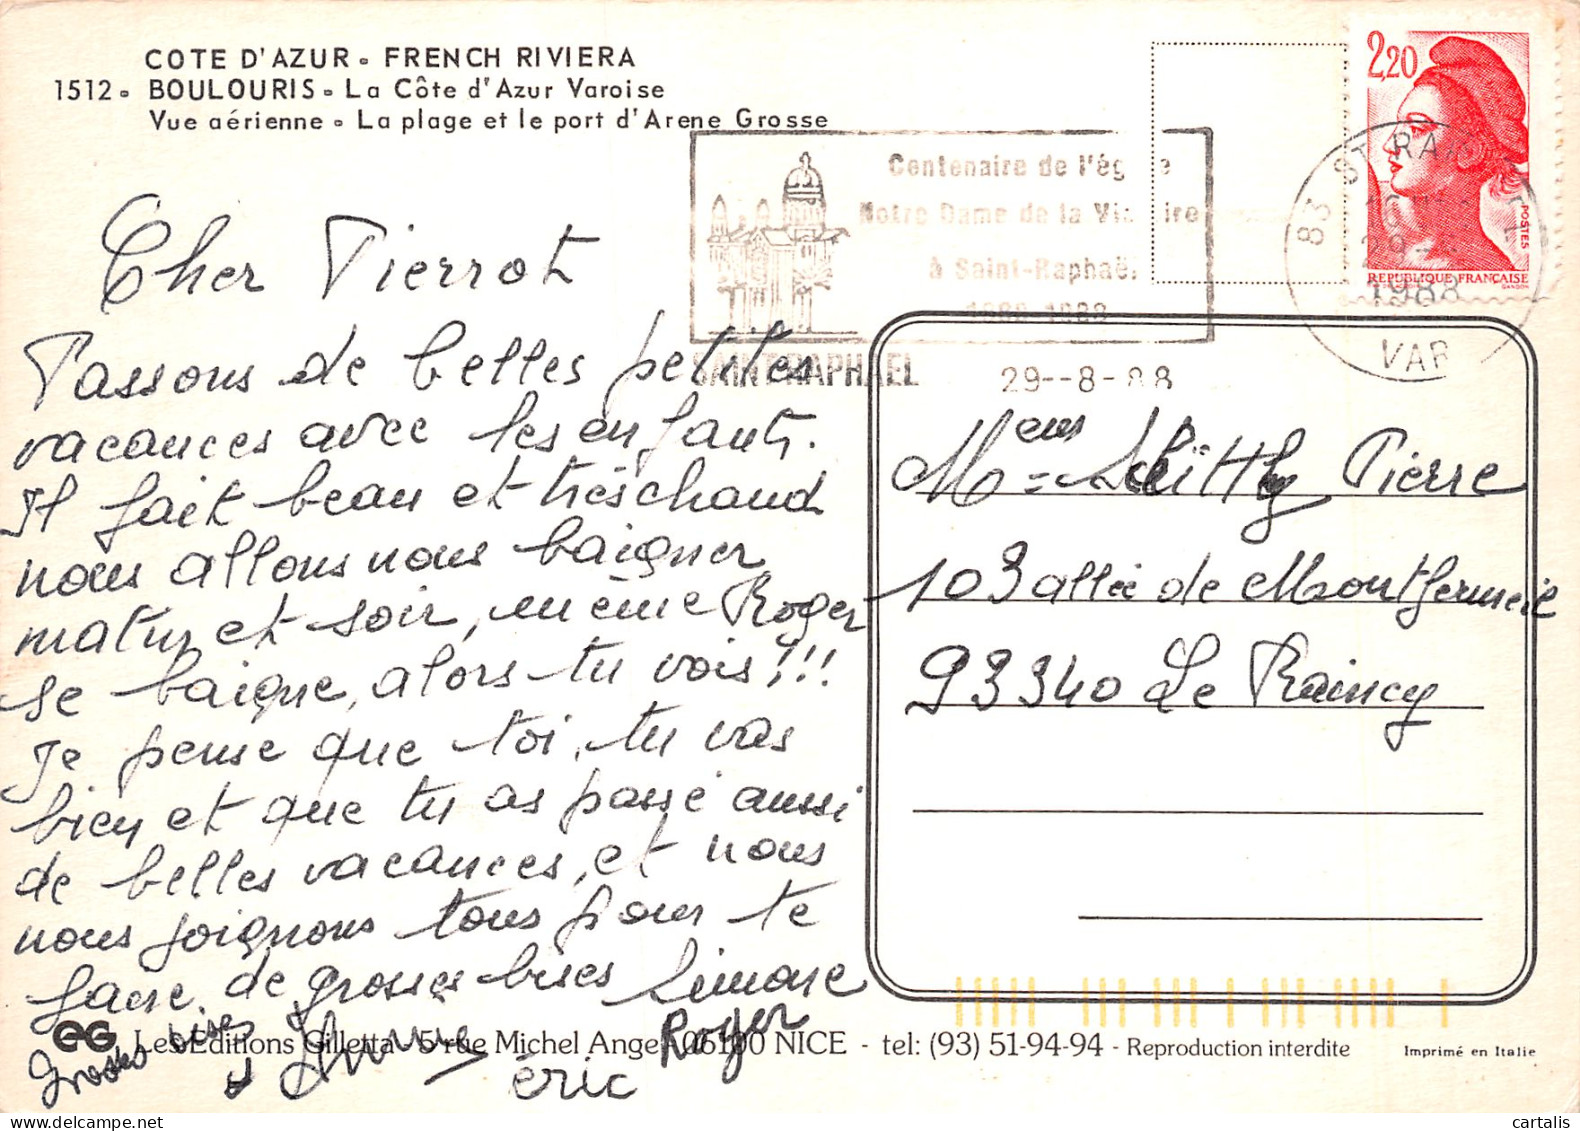 COTE D'AZUR - FRENCH RIVIERA
1512 - BOULOURIS - La Côte d'Azur Varoise
Vue aérienne - La plage et le port d'Arene Grosse
Centenaire de l'ég e
Notre Dame de la Vic ire
à Saint-Raphaël
1888-1988
SAINT RAPHAEL
29--8-88
2,20
POSTES
REPUBLIQUE FRANÇAISE
GANDON
83 ST RAPH
29
1988
VAR
Cher Pierrot
Passons de belles petites
vacances avec les enfants.
Il fait beau et très chaud
nous allons nous baigner
matin et soir, même Roger
se baigne, alors tu vois!!!
Je pense que toi, tu vas
bien et que tu as passé aussi
de belles vacances, et nous
nous joignons tous pour te
faire de grosses bises Simone
Roger
Grosses bises
éric
Mr Pierre
103 allée de Montfermeil
93340 Le Raincy
EG Les Editions Gilletta - 5 rue Michel Ange - 06100 NICE - tel: (93) 51-94-94 - Reproduction interdite
Imprimé en Italie
cartalis